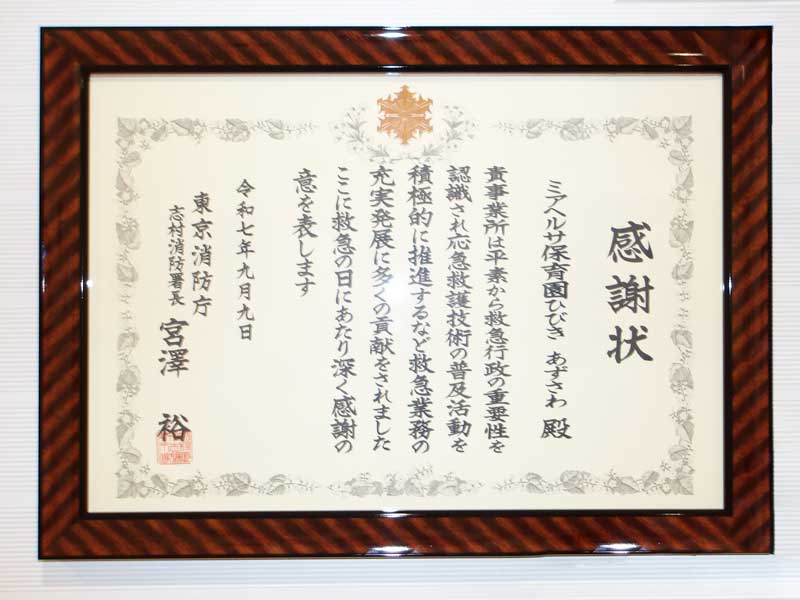 感謝状
ミアヘルサ保育園ひびき あずさわ 殿
貴事業所は平素から救急行政の重要性を
認識され応急救護技術の普及活動を
積極的に推進するなど救急業務の
充実発展に多くの貢献をされました
ここに救急の日にあたり深く感謝の
意を表します
令和七年九月九日
東京消防庁
志村消防署長 宮澤 裕